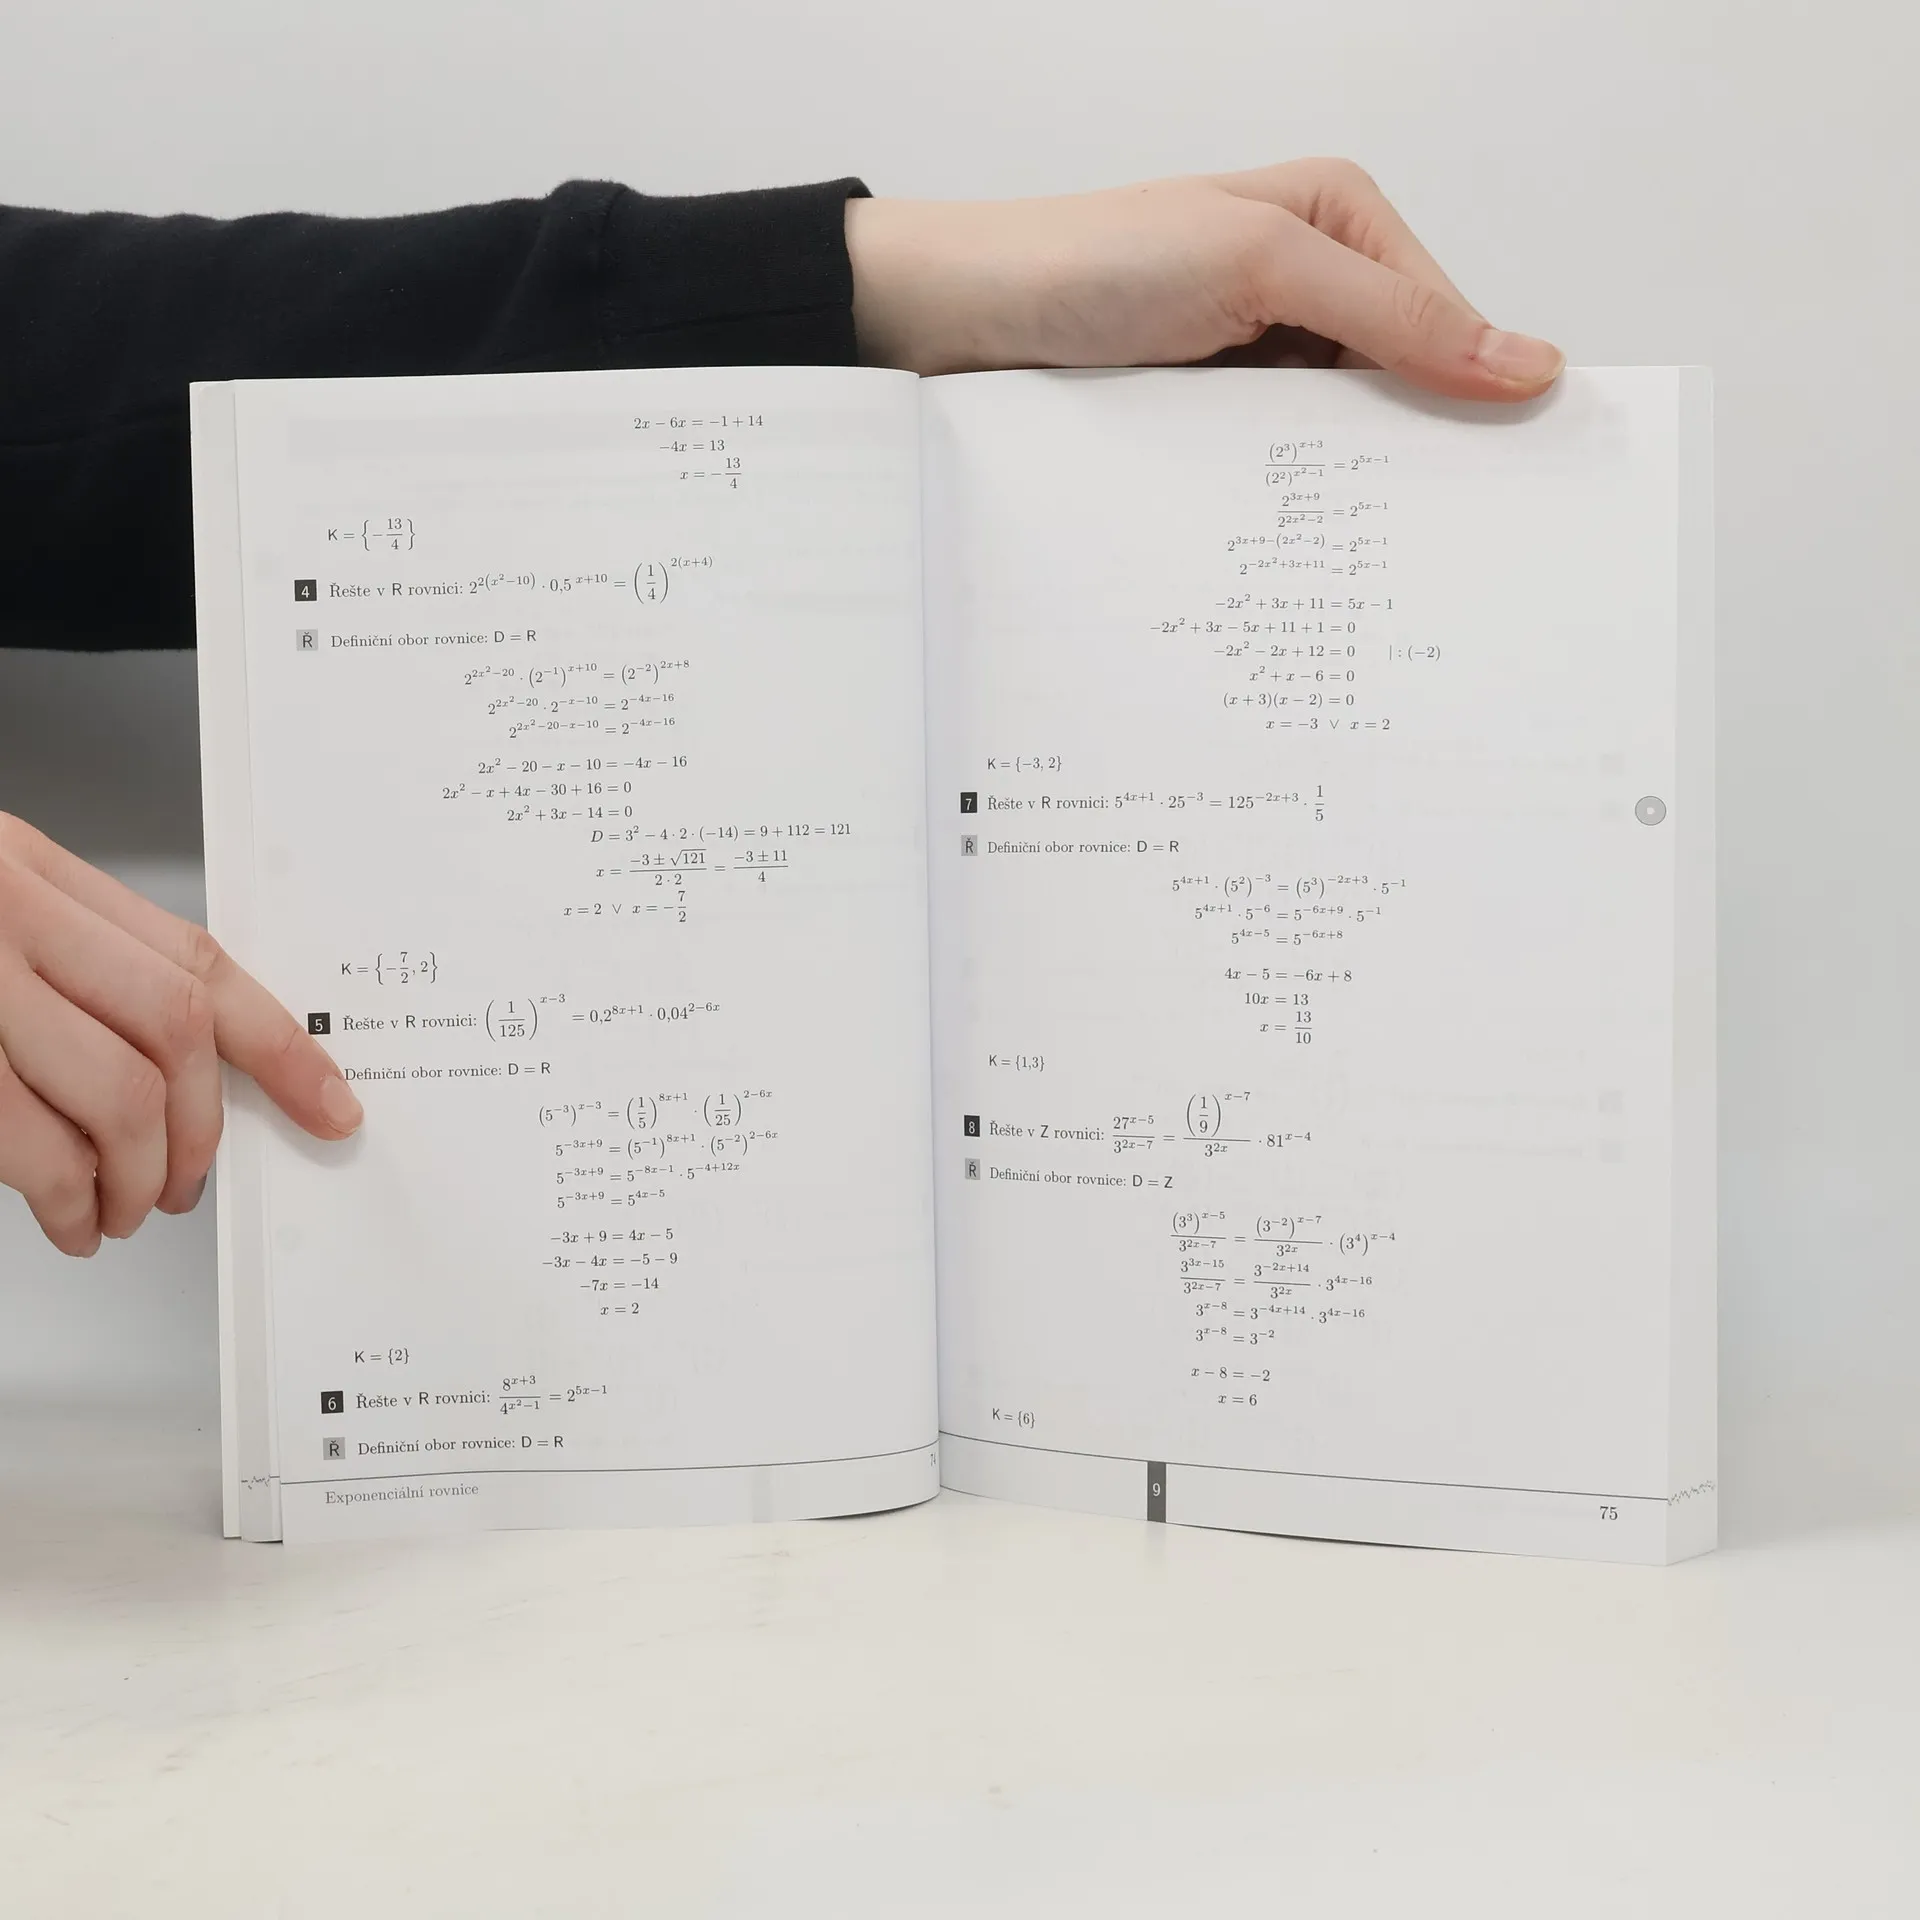 2x − 6x = −1 + 14
−4x = 13
x = −13/4
K = {−13/4}
4 Řešte v R rovnici: 2^(2(x²−10)) · 0,5^(x+10) = (1/4)^(2(x+4))
Ř Definiční obor rovnice: D = R
2^(2x²−20) · (2^(−1))^(x+10) = (2^(−2))^(2x+8)
2^(2x²−20) · 2^(−x−10) = 2^(−4x−16)
2^(2x²−20−x−10) = 2^(−4x−16)
2x² − 20 − x − 10 = −4x − 16
2x² − x + 4x − 30 + 16 = 0
2x² + 3x − 14 = 0
D = 3² − 4 · 2 · (−14) = 9 + 112 = 121
x = (−3 ± √121)/(2 · 2) = (−3 ± 11)/4
x = 2 ∨ x = −7/2
K = {−7/2, 2}
5 Řešte v R rovnici: (1/125)^(x−3) = 0,2^(8x+1) · 0,04^(2−6x)
Definiční obor rovnice: D = R
(5^(−3))^(x−3) = (1/5)^(8x+1) · (1/25)^(2−6x)
5^(−3x+9) = (5^(−1))^(8x+1) · (5^(−2))^(2−6x)
5^(−3x+9) = 5^(−8x−1) · 5^(−4+12x)
5^(−3x+9) = 5^(4x−5)
−3x + 9 = 4x − 5
−3x − 4x = −5 − 9
−7x = −14
x = 2
K = {2}
6 Řešte v R rovnici: 8^(x+3)/4^(x²−1) = 2^(5x−1)
Ř Definiční obor rovnice: D = R
Exponenciální rovnice
(2³)^(x+3)/(2²)^(x²−1) = 2^(5x−1)
2^(3x+9)/2^(2x²−2) = 2^(5x−1)
2^(3x+9−(2x²−2)) = 2^(5x−1)
2^(−2x²+3x+11) = 2^(5x−1)
−2x² + 3x + 11 = 5x − 1
−2x² + 3x − 5x + 11 + 1 = 0
−2x² − 2x + 12 = 0 | : (−2)
x² + x − 6 = 0
(x + 3)(x − 2) = 0
x = −3 ∨ x = 2
K = {−3, 2}
7 Řešte v R rovnici: 5^(4x+1) · 25^(−3) = 125^(−2x+3) · 1/5
Ř Definiční obor rovnice: D = R
5^(4x+1) · (5²)^(−3) = (5³)^(−2x+3) · 5^(−1)
5^(4x+1) · 5^(−6) = 5^(−6x+9) · 5^(−1)
5^(4x−5) = 5^(−6x+8)
4x − 5 = −6x + 8
10x = 13
x = 13/10
K = {1,3}
8 Řešte v Z rovnici: 27^(x−5)/3^(2x−7) = (1/9)^(x−7)/3^(2x) · 81^(x−4)
Ř Definiční obor rovnice: D = Z
(3³)^(x−5)/3^(2x−7) = (3^(−2))^(x−7)/3^(2x) · (3⁴)^(x−4)
3^(3x−15)/3^(2x−7) = 3^(−2x+14)/3^(2x) · 3^(4x−16)
3^(x−8) = 3^(−4x+14) · 3^(4x−16)
3^(x−8) = 3^(−2)
x − 8 = −2
x = 6
K = {6}
9
75